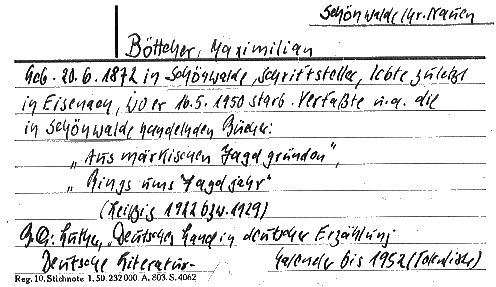 Schönwalde Kr. Nauen
Böttcher, Maximilian
Geb. 20.6.1872 in Schönwalde, Schriftsteller, lebte zuletzt
in Eisenach, wo er 16.5.1950 starb. Verfaßte u.a. die
in Schönwalde handelnden Bücher:
"Aus märkischen Jagdgründen",
"Rings ums Jagdjahr"
(Leipzig 1922 bzw. 1929)
Luther, Deutsches Land in deutscher Erzählung
Deutsche Literatur-Kalender bis 1952 (Totenliste)
Reg. 10. Stichnote 1. 50. 232000. A. 803. S. 4062